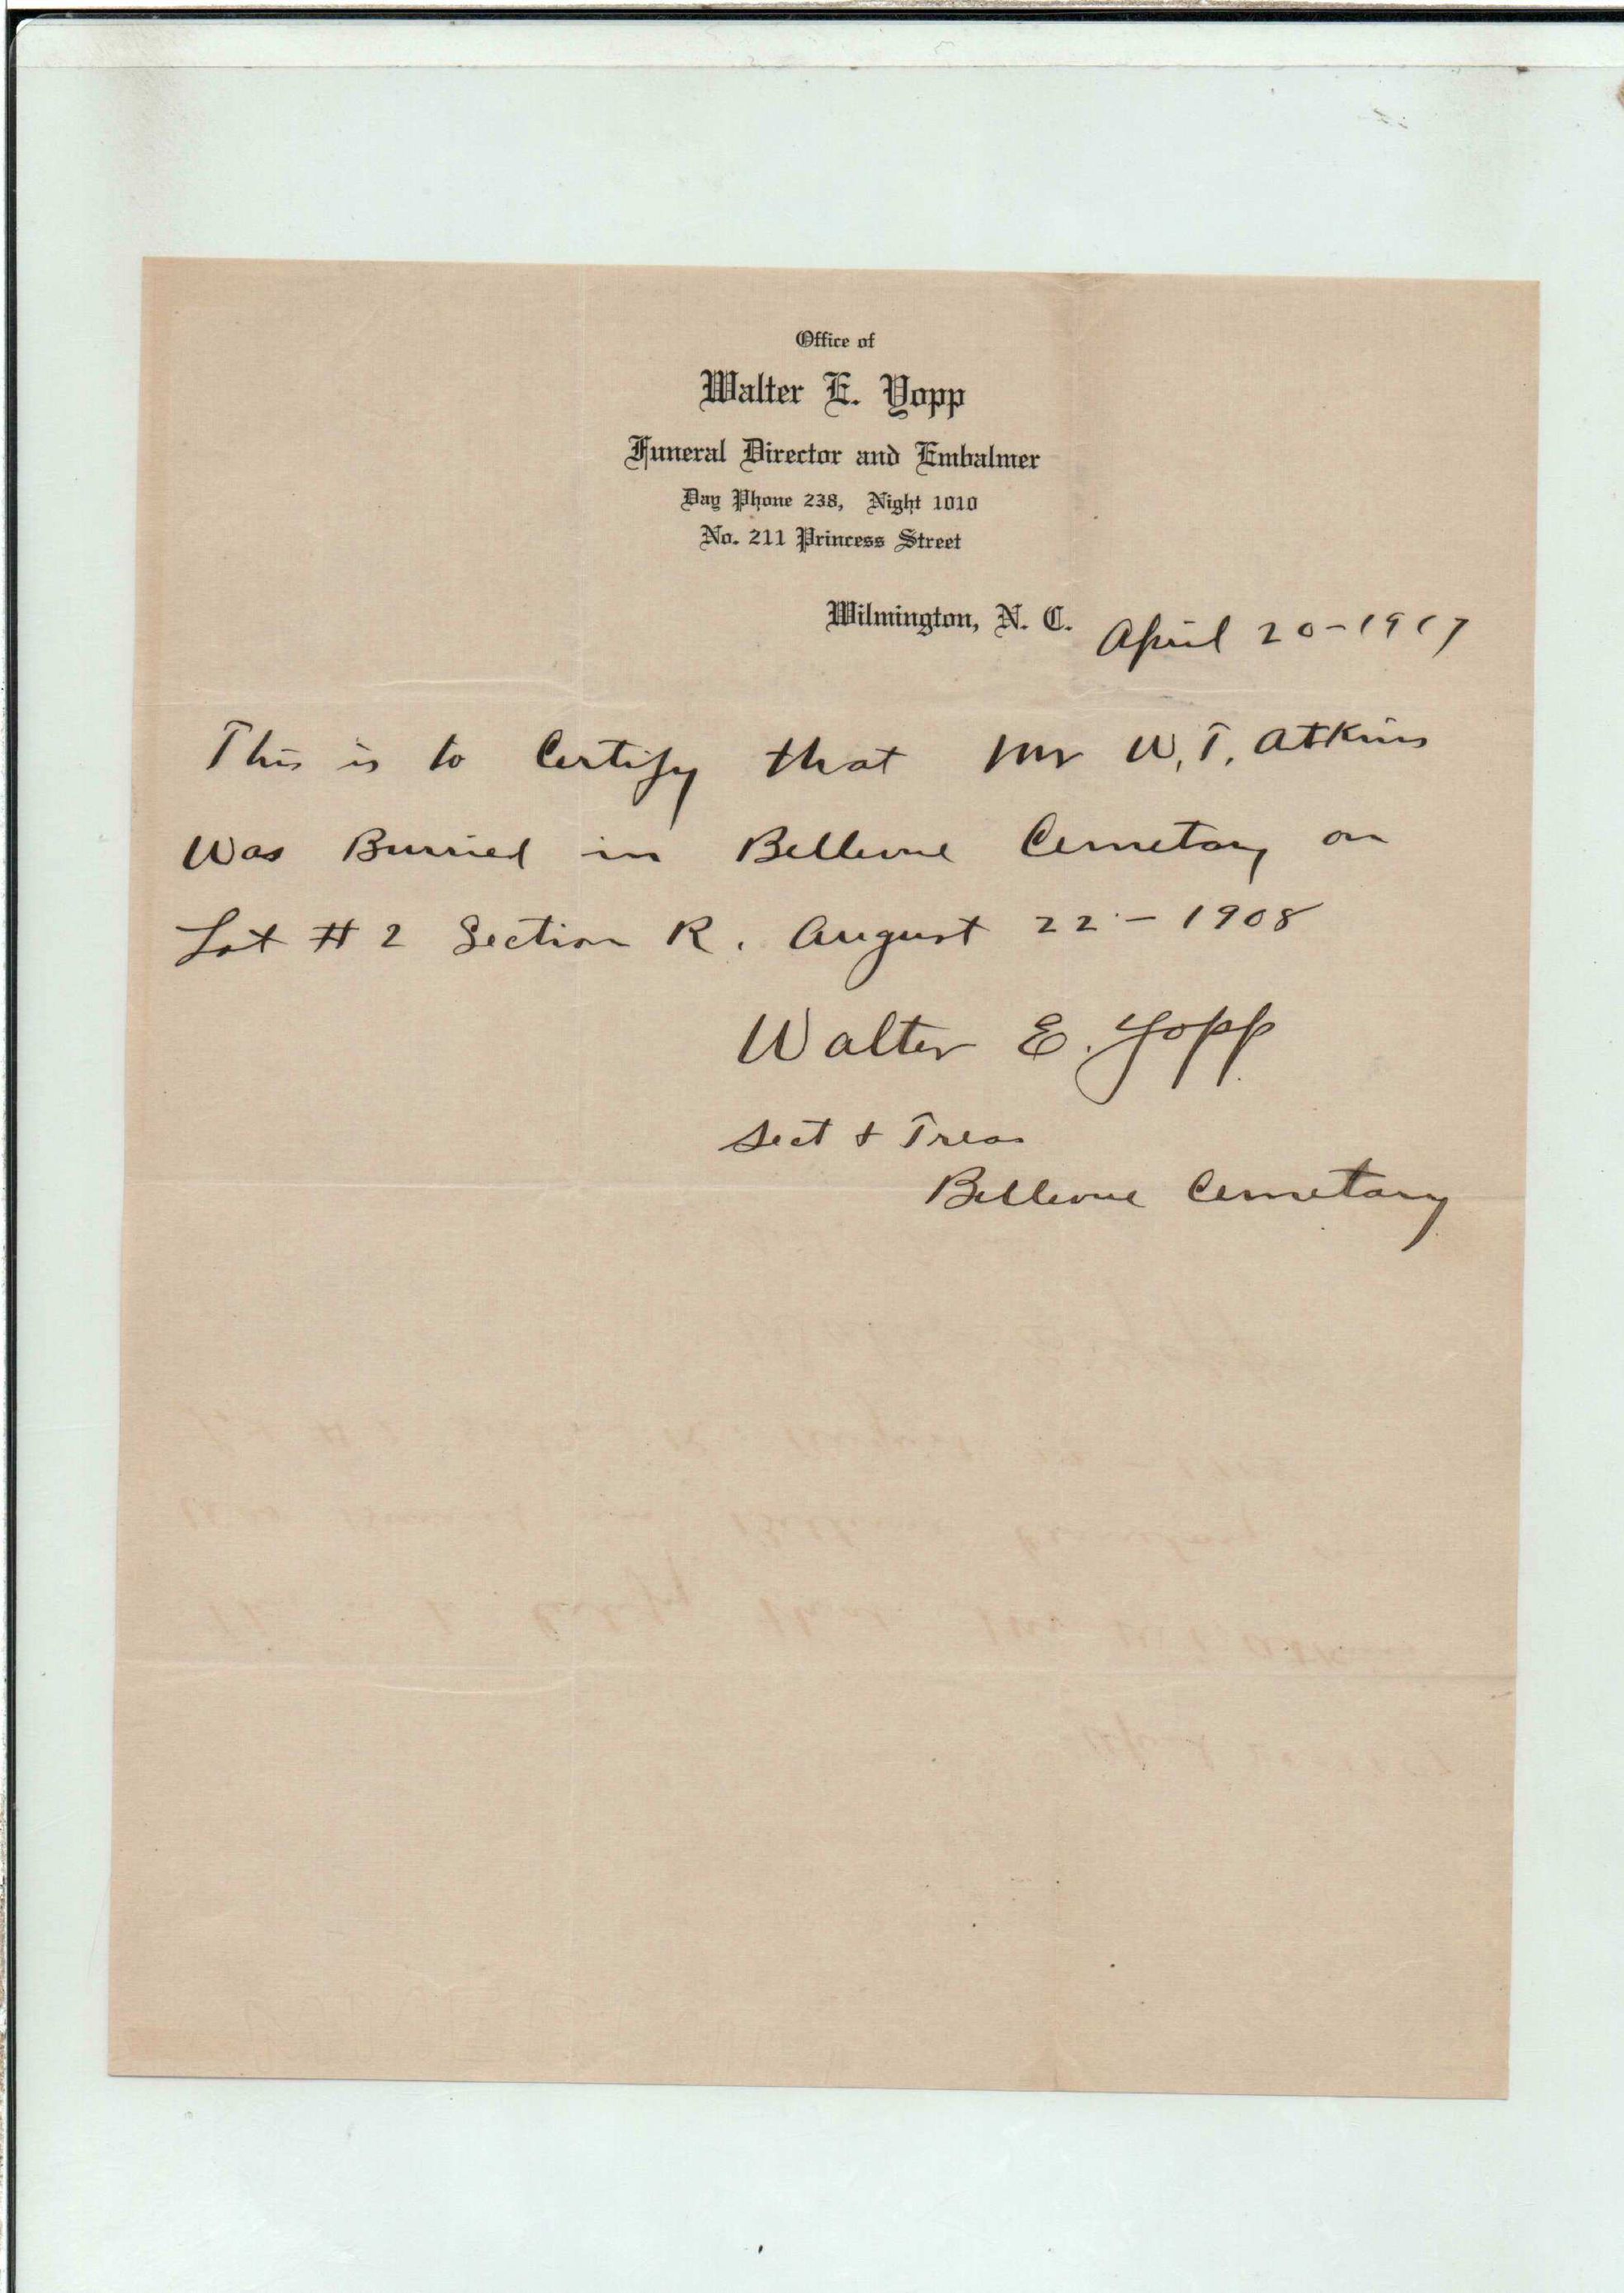 Office of
Walter E. Yopp
Funeral Director and Embalmer
Day Phone 238, Night 1010
No. 211 Princess Street
Wilmington, N. C. April 20-1917
This is to Certify that Mr W. T. Atkins
Was Burried in Bellevue Cemetary on
Lot # 2 Section R. August 22 - 1908
Walter E. Yopp
Sect & Treas
Bellevue Cemetary